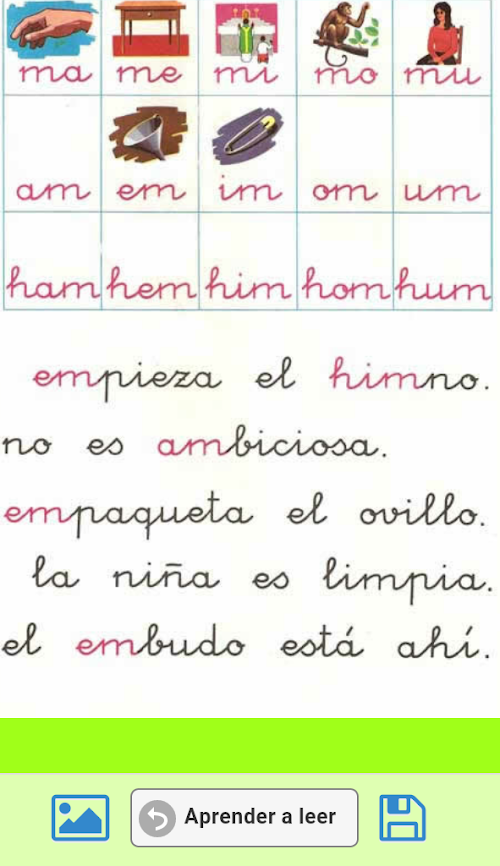 ma me mi mo mu
am em im om um
ham hem him hom hum
empieza el himno.
no es ambiciosa.
empaqueta el ovillo.
la niña es limpia.
el embudo está ahí.
Aprender a leer